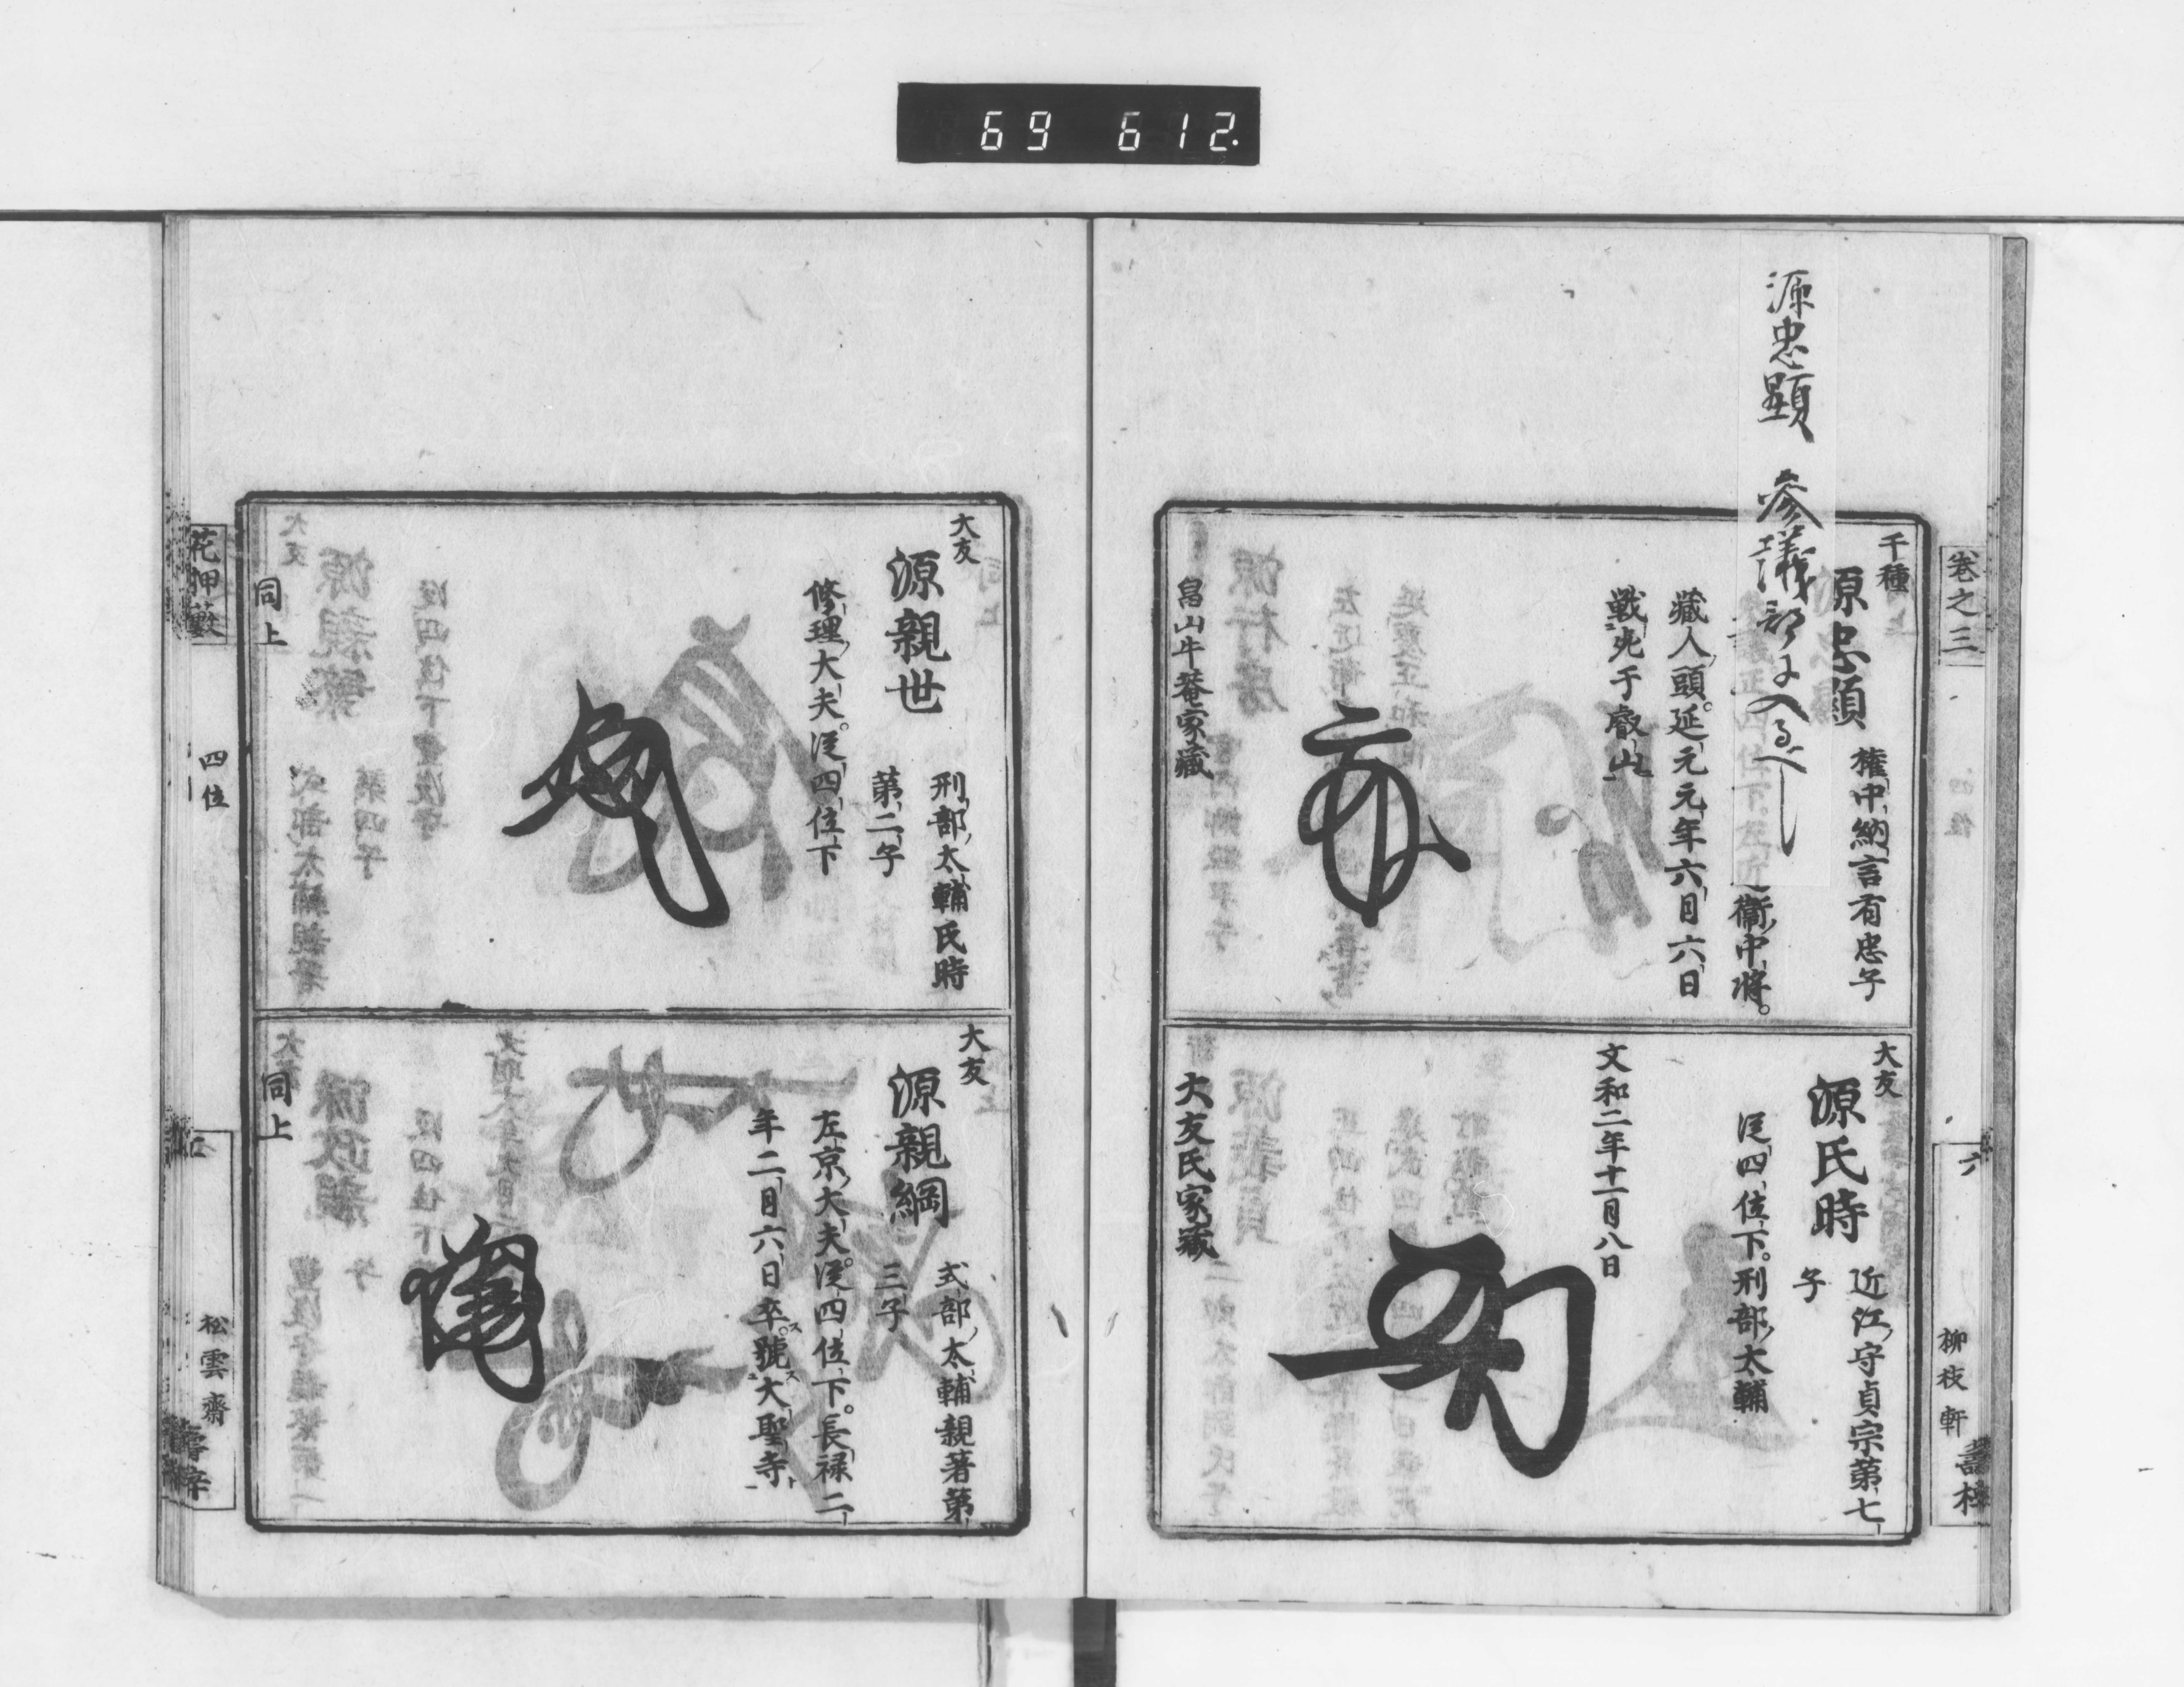 69 612.
源忠顕 参議部に入るべし
巻之三
六
柳枝軒
千種
源忠顕
権中納言有忠子
衛中将。
蔵人頭。延元元年六月六日
戦死于叡山
畠山牛菴家蔵
大友
源氏時
近江守貞宗第七
子
従四位下。刑部太輔
文和二年十一月八日
大友氏家蔵
大友
源親世
刑部太輔氏時
第二子
修理大夫。従四位下
同上
大友
源親綱
式部太輔親著第
三子
左京大夫。従四位下。長禄二
年二月六日卒。號大聖寺
同上
花押藪
四位
松雲齋